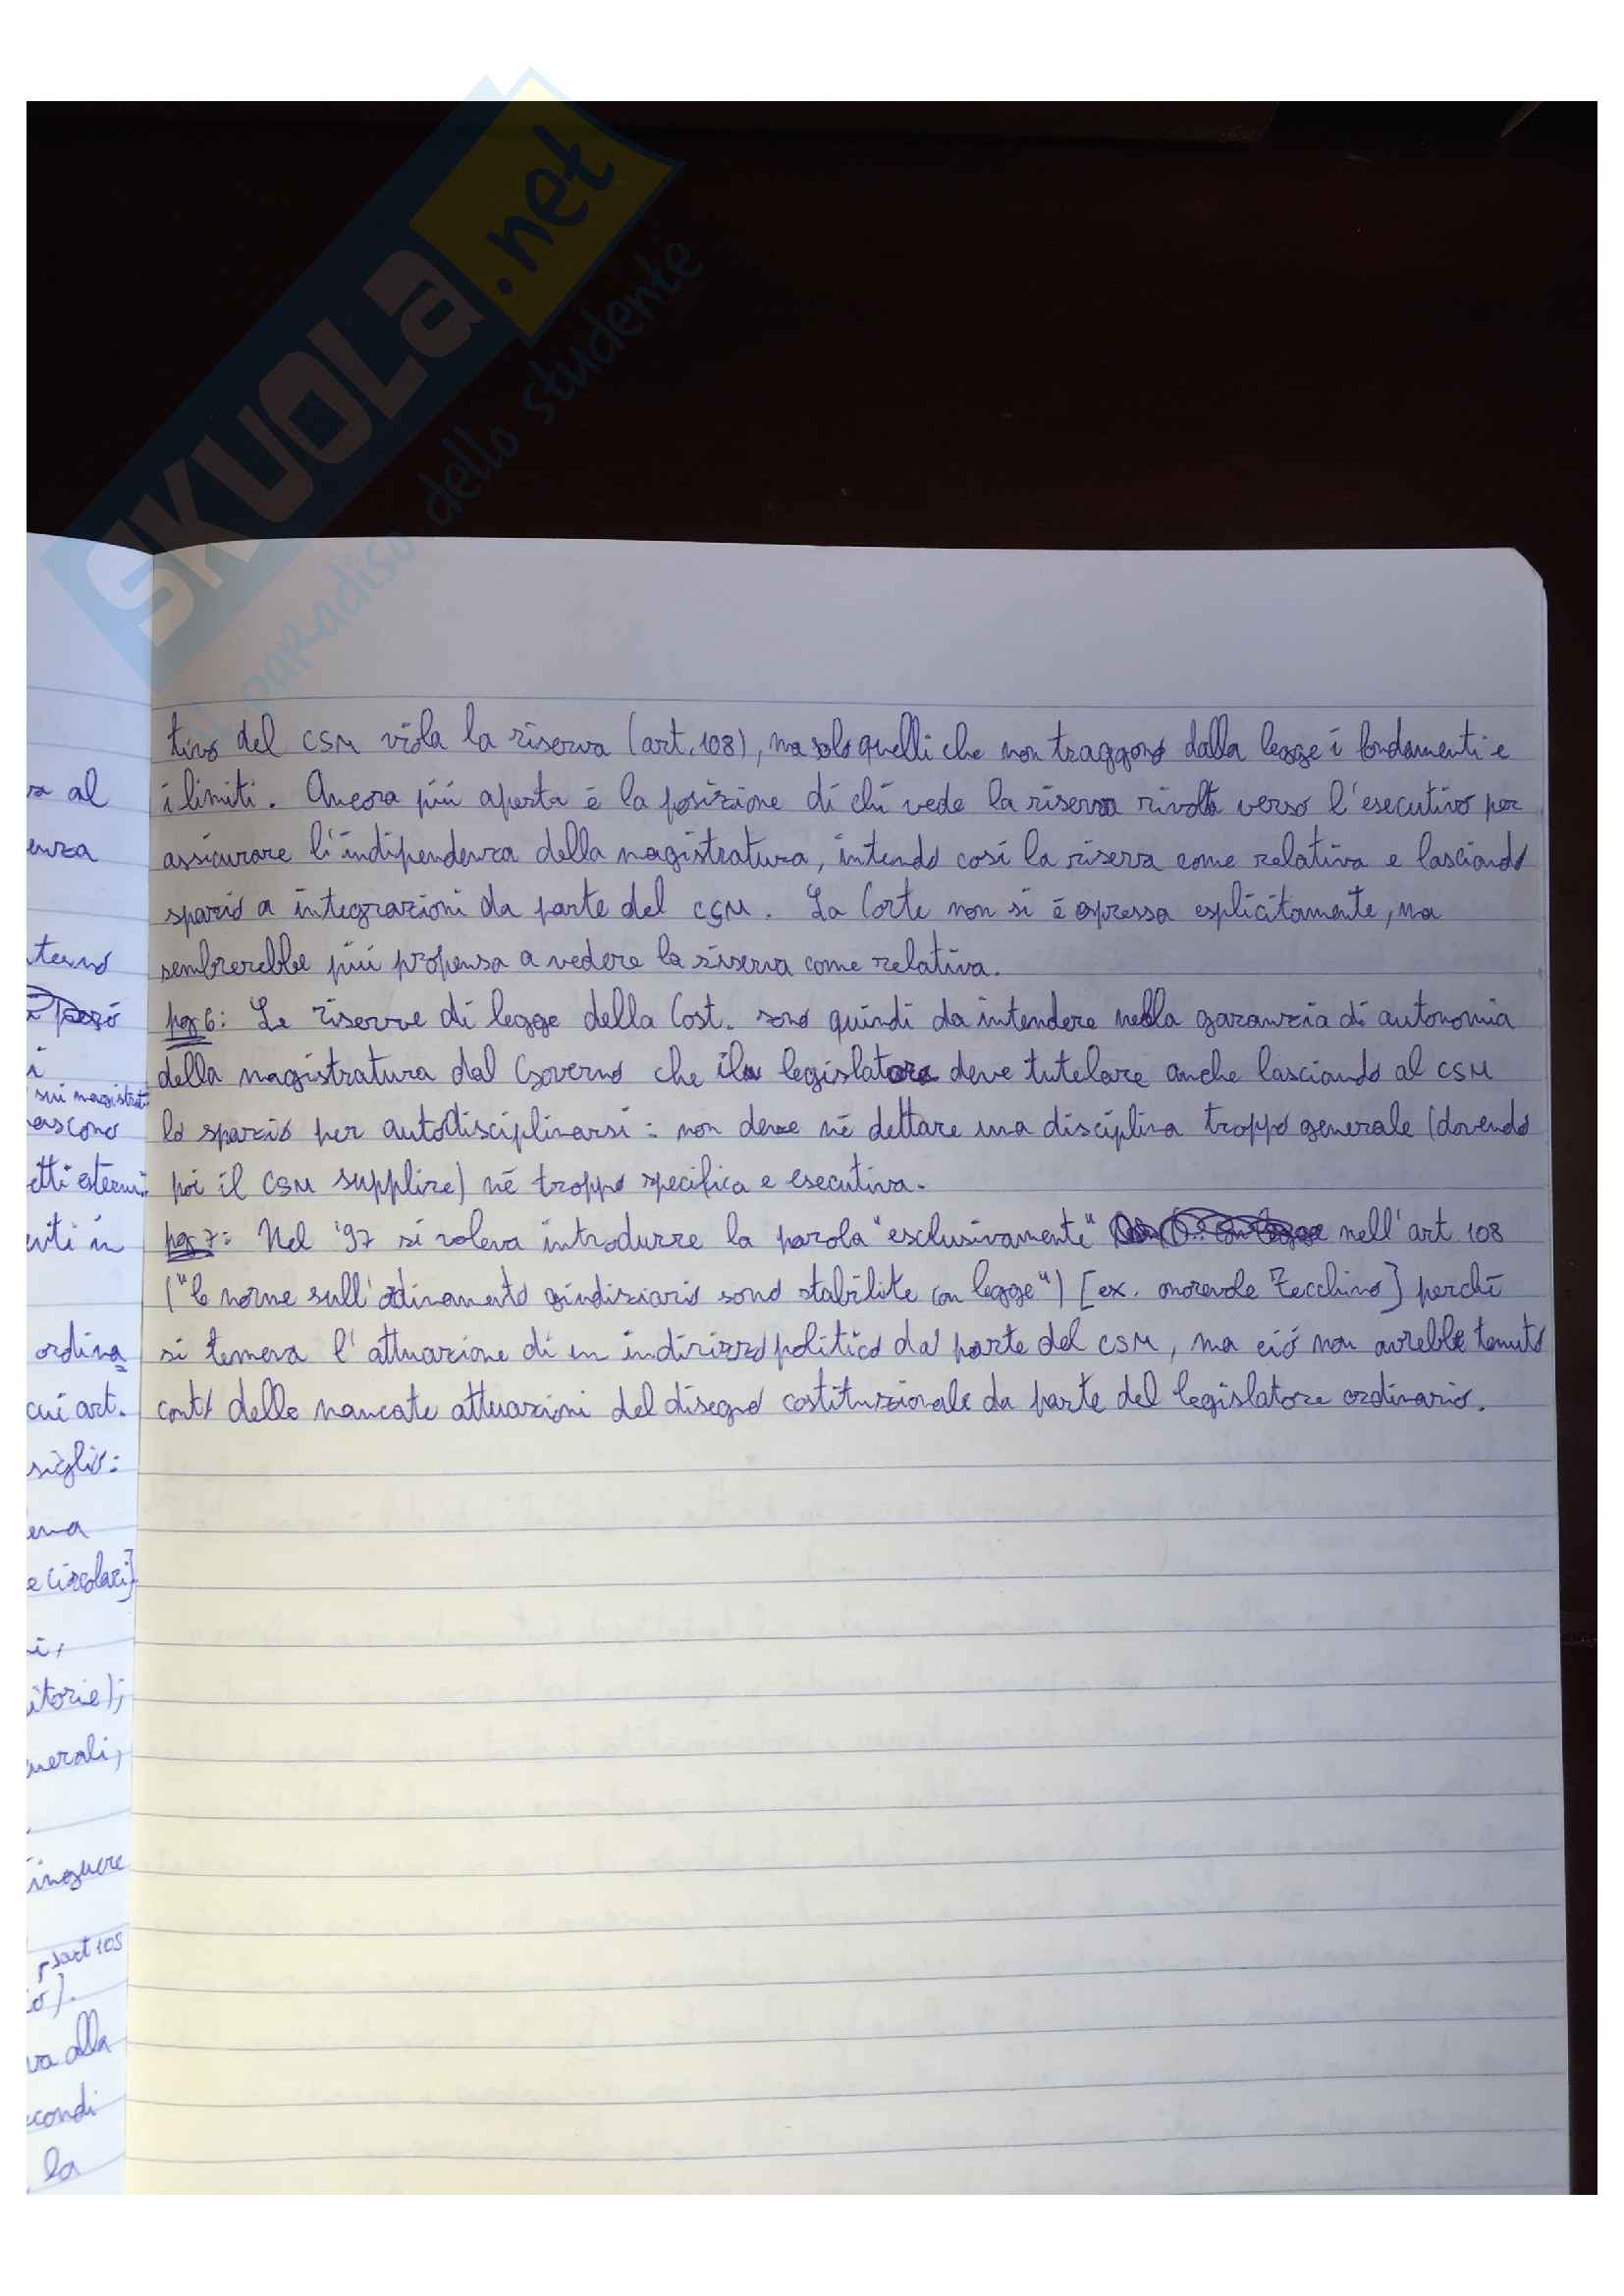 SKUOLA.net
paradiso dello studente
tivo del CSM viola la riserva (art. 108), ma solo quelli che non traggono dalla legge i fondamenti e
i limiti. Ancora più aperta è la posizione di chi vede la riserva rivolta verso l'esecutivo per
assicurare l'indipendenza della magistratura, intendo così la riserva come relativa e lasciando
spazio a integrazioni da parte del CSM. La Corte non si è espressa esplicitamente, ma
sembrerebbe più propensa a vedere la riserva come relativa.
pg 6: Le riserve di legge della Cost. sono quindi da intendere nella garanzia di autonomia
della magistratura dal Governo che il legislatore deve tutelare anche lasciando al CSM
lo spazio per autodisciplinarsi: non deve né dettare una disciplina troppo generale (dovendo
poi il CSM supplire) né troppo specifica e esecutiva.
pg 7: Nel '97 si voleva introdurre la parola "esclusivamente" nell'art 108
("le norme sull'ordinamento giudiziario sono stabilite con legge") [ex. onorevole Zecchino] perché
si temeva l'attuazione di un indirizzo politico da parte del CSM, ma ciò non avrebbe tenuto
conto delle mancate attuazioni del disegno costituzionale da parte del legislatore ordinario.
al
enza
però
i
sui magistrati
nascono
etti esterni
in
ordina
cui art.
siglio:
ema
e circolari]
i,
itorie);
enerali,
inguere
art 105
io].
va alla
econdi
la